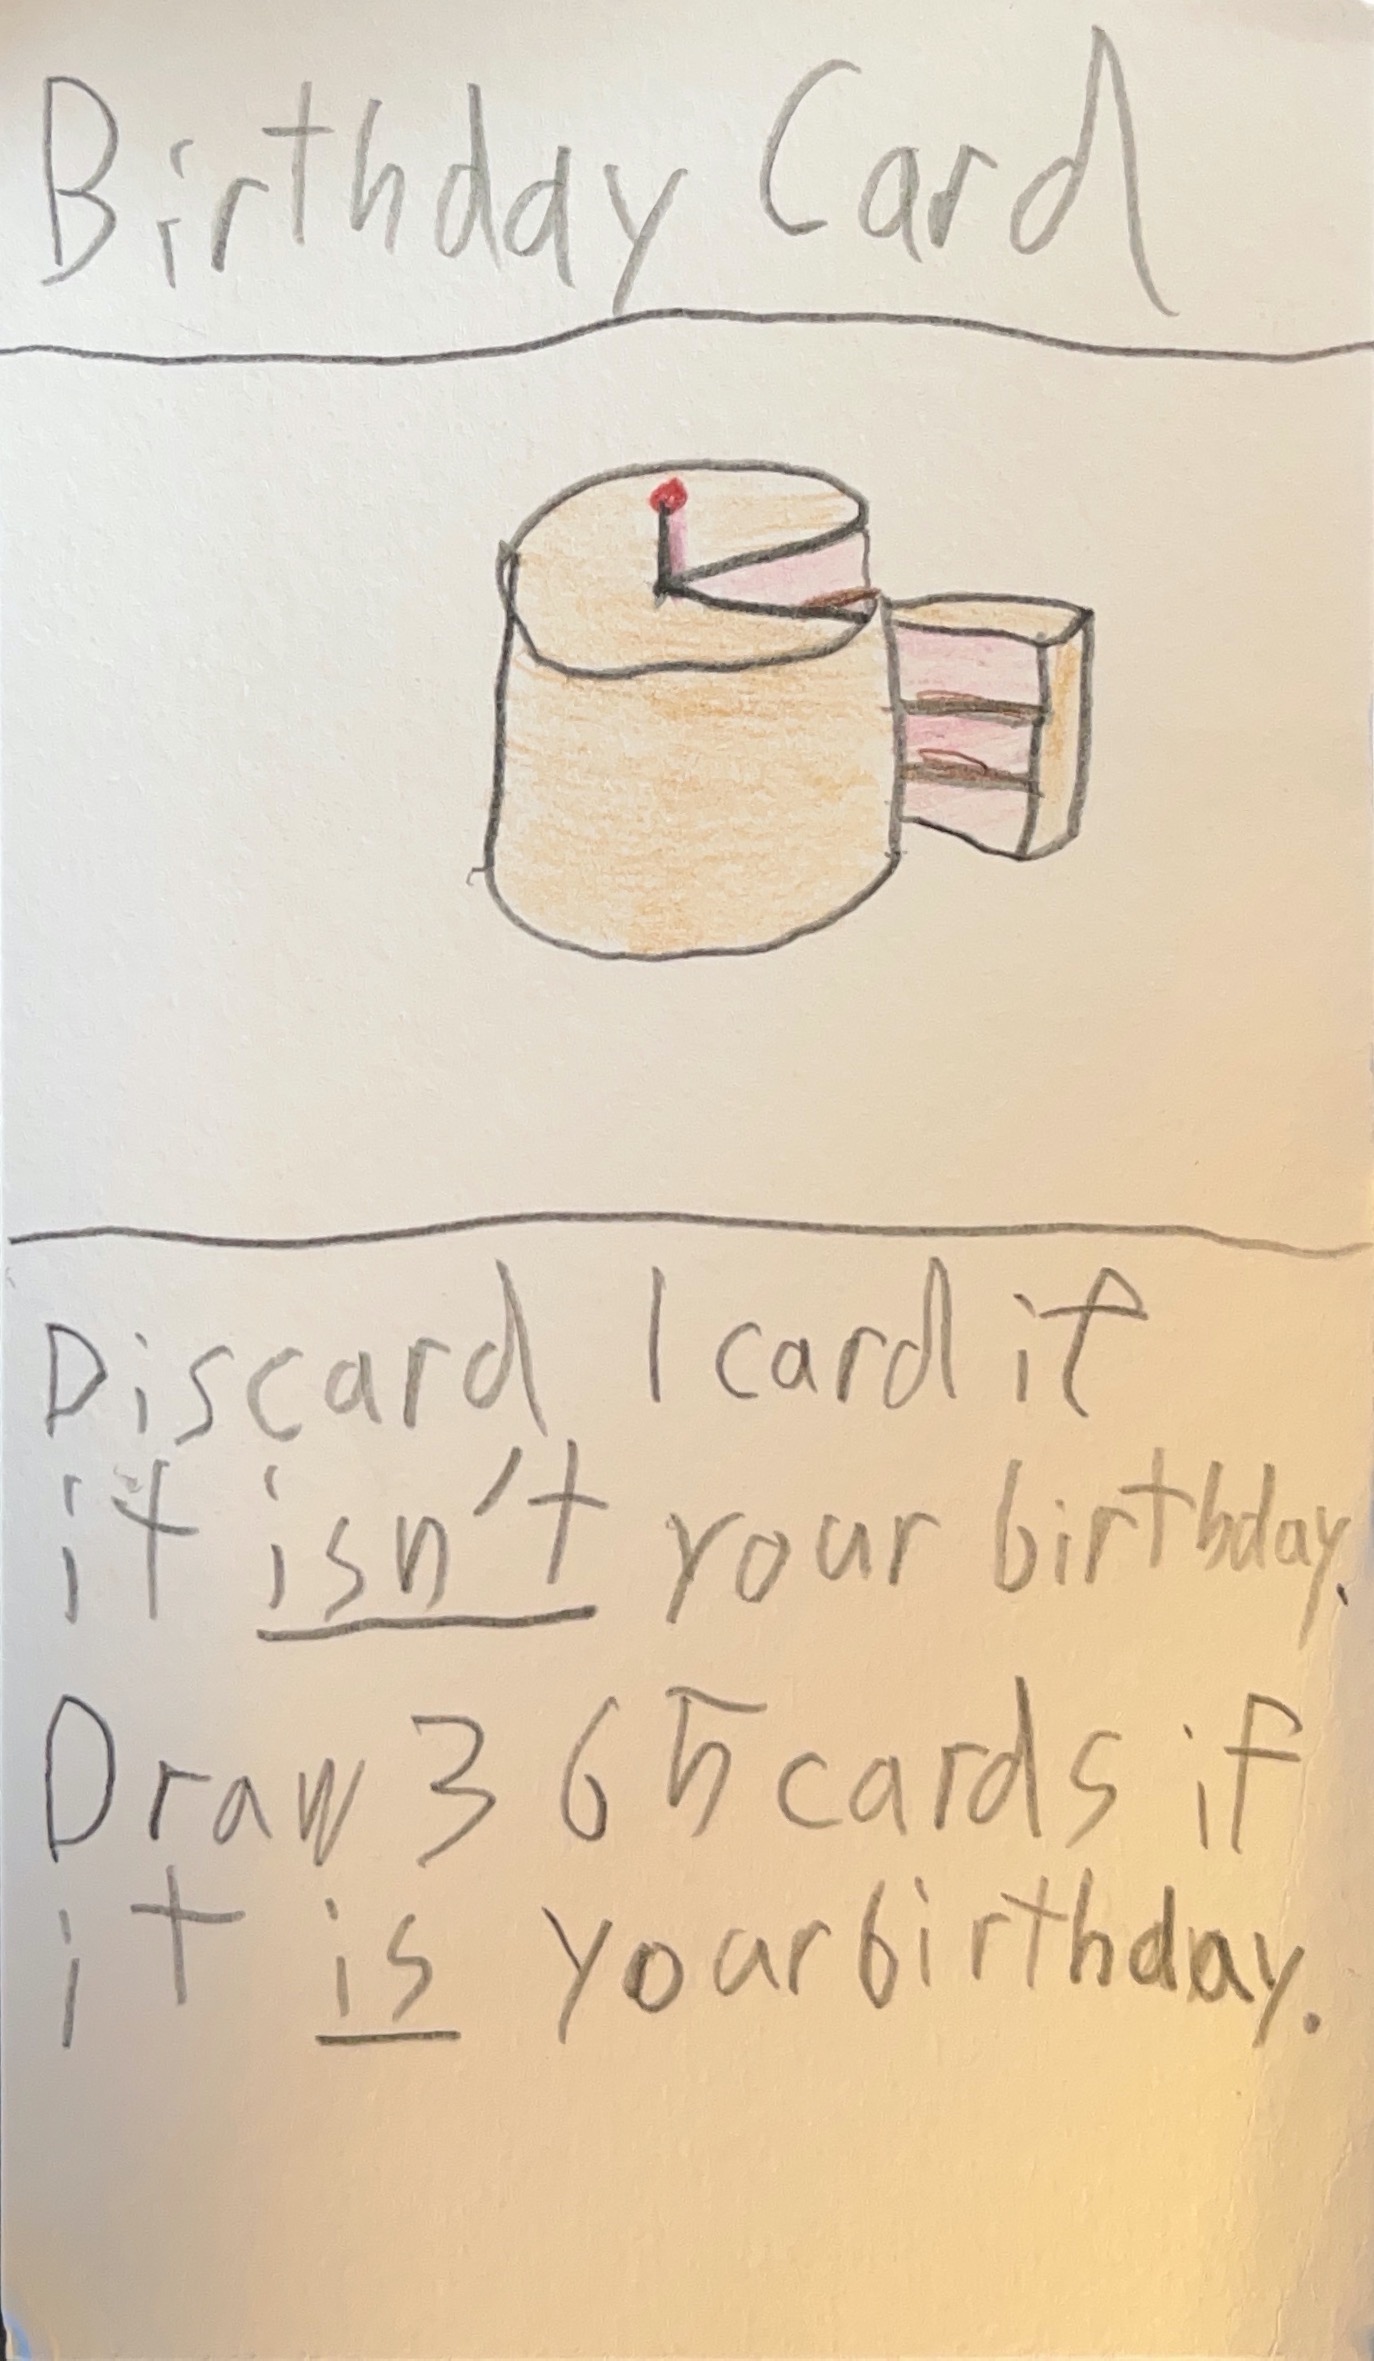 Birthday Card
Discard 1 card if
it isn't your birthday.
Draw 365 cards if
it is your birthday.